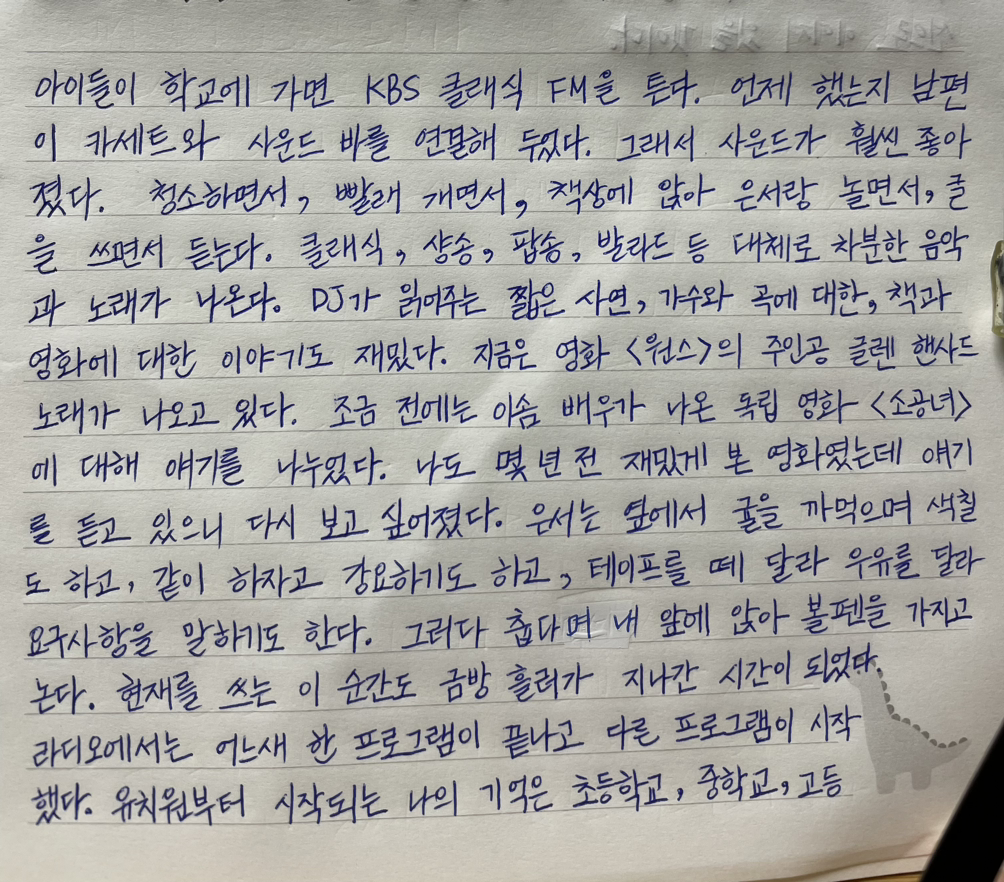 아이들이 학교에 가면 KBS 클래식 FM을 튼다. 언제 했는지 남편
이 카세트와 사운드 바를 연결해 두었다. 그래서 사운드가 훨씬 좋아
졌다. 청소하면서, 빨래 개면서, 책상에 앉아 은서랑 놀면서, 글
을 쓰면서 듣는다. 클래식, 샹송, 팝송, 발라드 등 대체로 차분한 음악
과 노래가 나온다. DJ가 읽어주는 짧은 사연, 가수와 곡에 대한, 책과
영화에 대한 이야기도 재밌다. 지금은 영화 <원스>의 주인공 글렌 핸사드
노래가 나오고 있다. 조금 전에는 이솜 배우가 나온 독립 영화 <소공녀>
에 대해 얘기를 나누었다. 나도 몇 년 전 재밌게 본 영화였는데 얘기
를 듣고 있으니 다시 보고 싶어졌다. 은서는 옆에서 귤을 까먹으며 색칠
도 하고, 같이 하자고 강요하기도 하고, 테이프를 떼 달라 우유를 달라
요구사항을 말하기도 한다. 그러다 춥다며 내 앞에 앉아 볼펜을 가지고
논다. 현재를 쓰는 이 순간도 금방 흘러가 지나간 시간이 되었다.
라디오에서는 어느새 한 프로그램이 끝나고 다른 프로그램이 시작
했다. 유치원부터 시작되는 나의 기억은 초등학교, 중학교, 고등